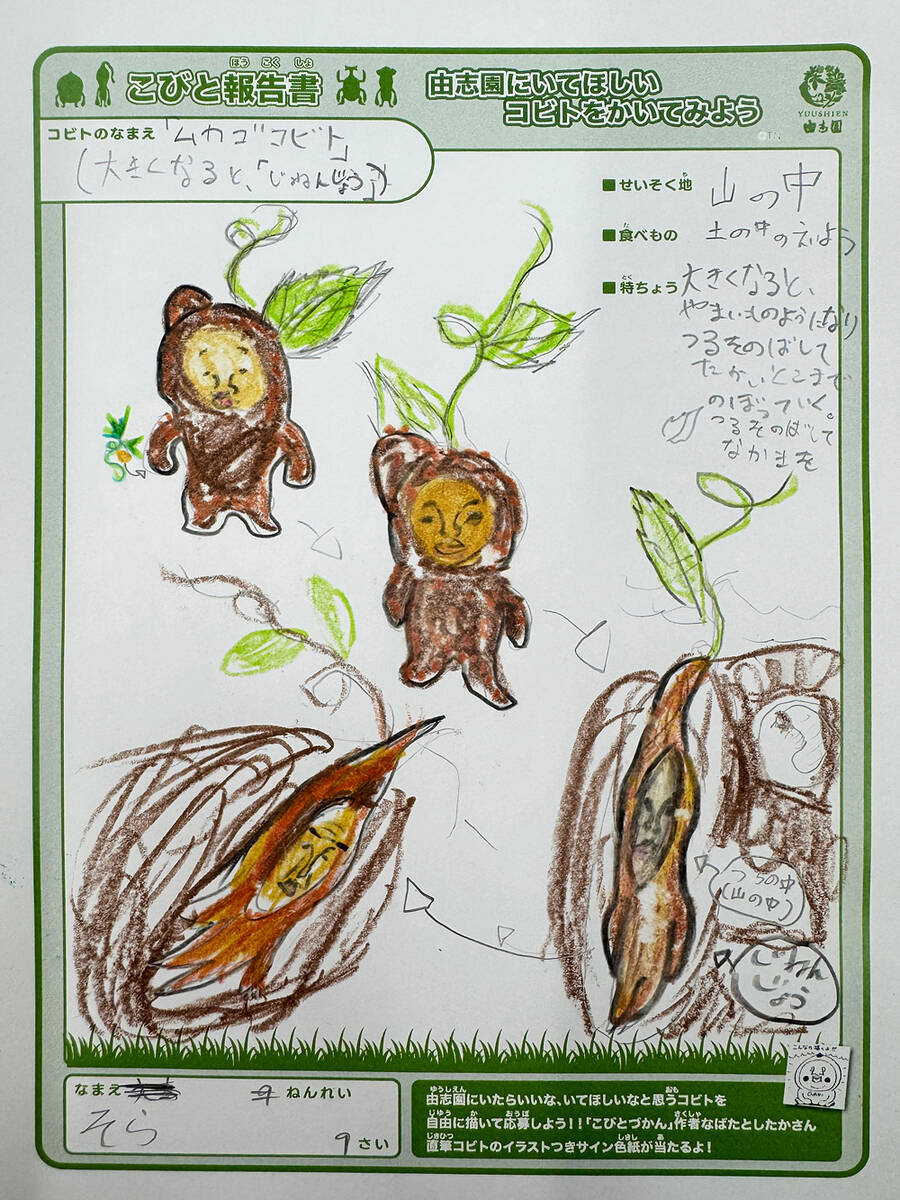 ほう こく しょ
こびと報告書
由志園にいてほしい
コビトをかいてみよう
YUUSHIEN
由志園
コビトのなまえ 「ムカゴコビト」
(大きくなると、「じねんじょう」)
■せいそく地 山の中
■食べもの 土の中のえいよう
■特ちょう 大きくなると、
やまいものようになり
つるをのばして
たかいところまで
のぼっていく。
つるをのばして
なかまを
つちの中
(山の中)
じねん
じょう
なまえ
そら
ねんれい
9さい
ゆうしえん おも
由志園にいたらいいな、いてほしいなと思うコビトを
じゆう か おうぼ さくしゃ
自由に描いて応募しよう!!「こびとづかん」作者なばたとしたかさん
じきひつ しきし あ
直筆コビトのイラストつきサイン色紙が当たるよ!